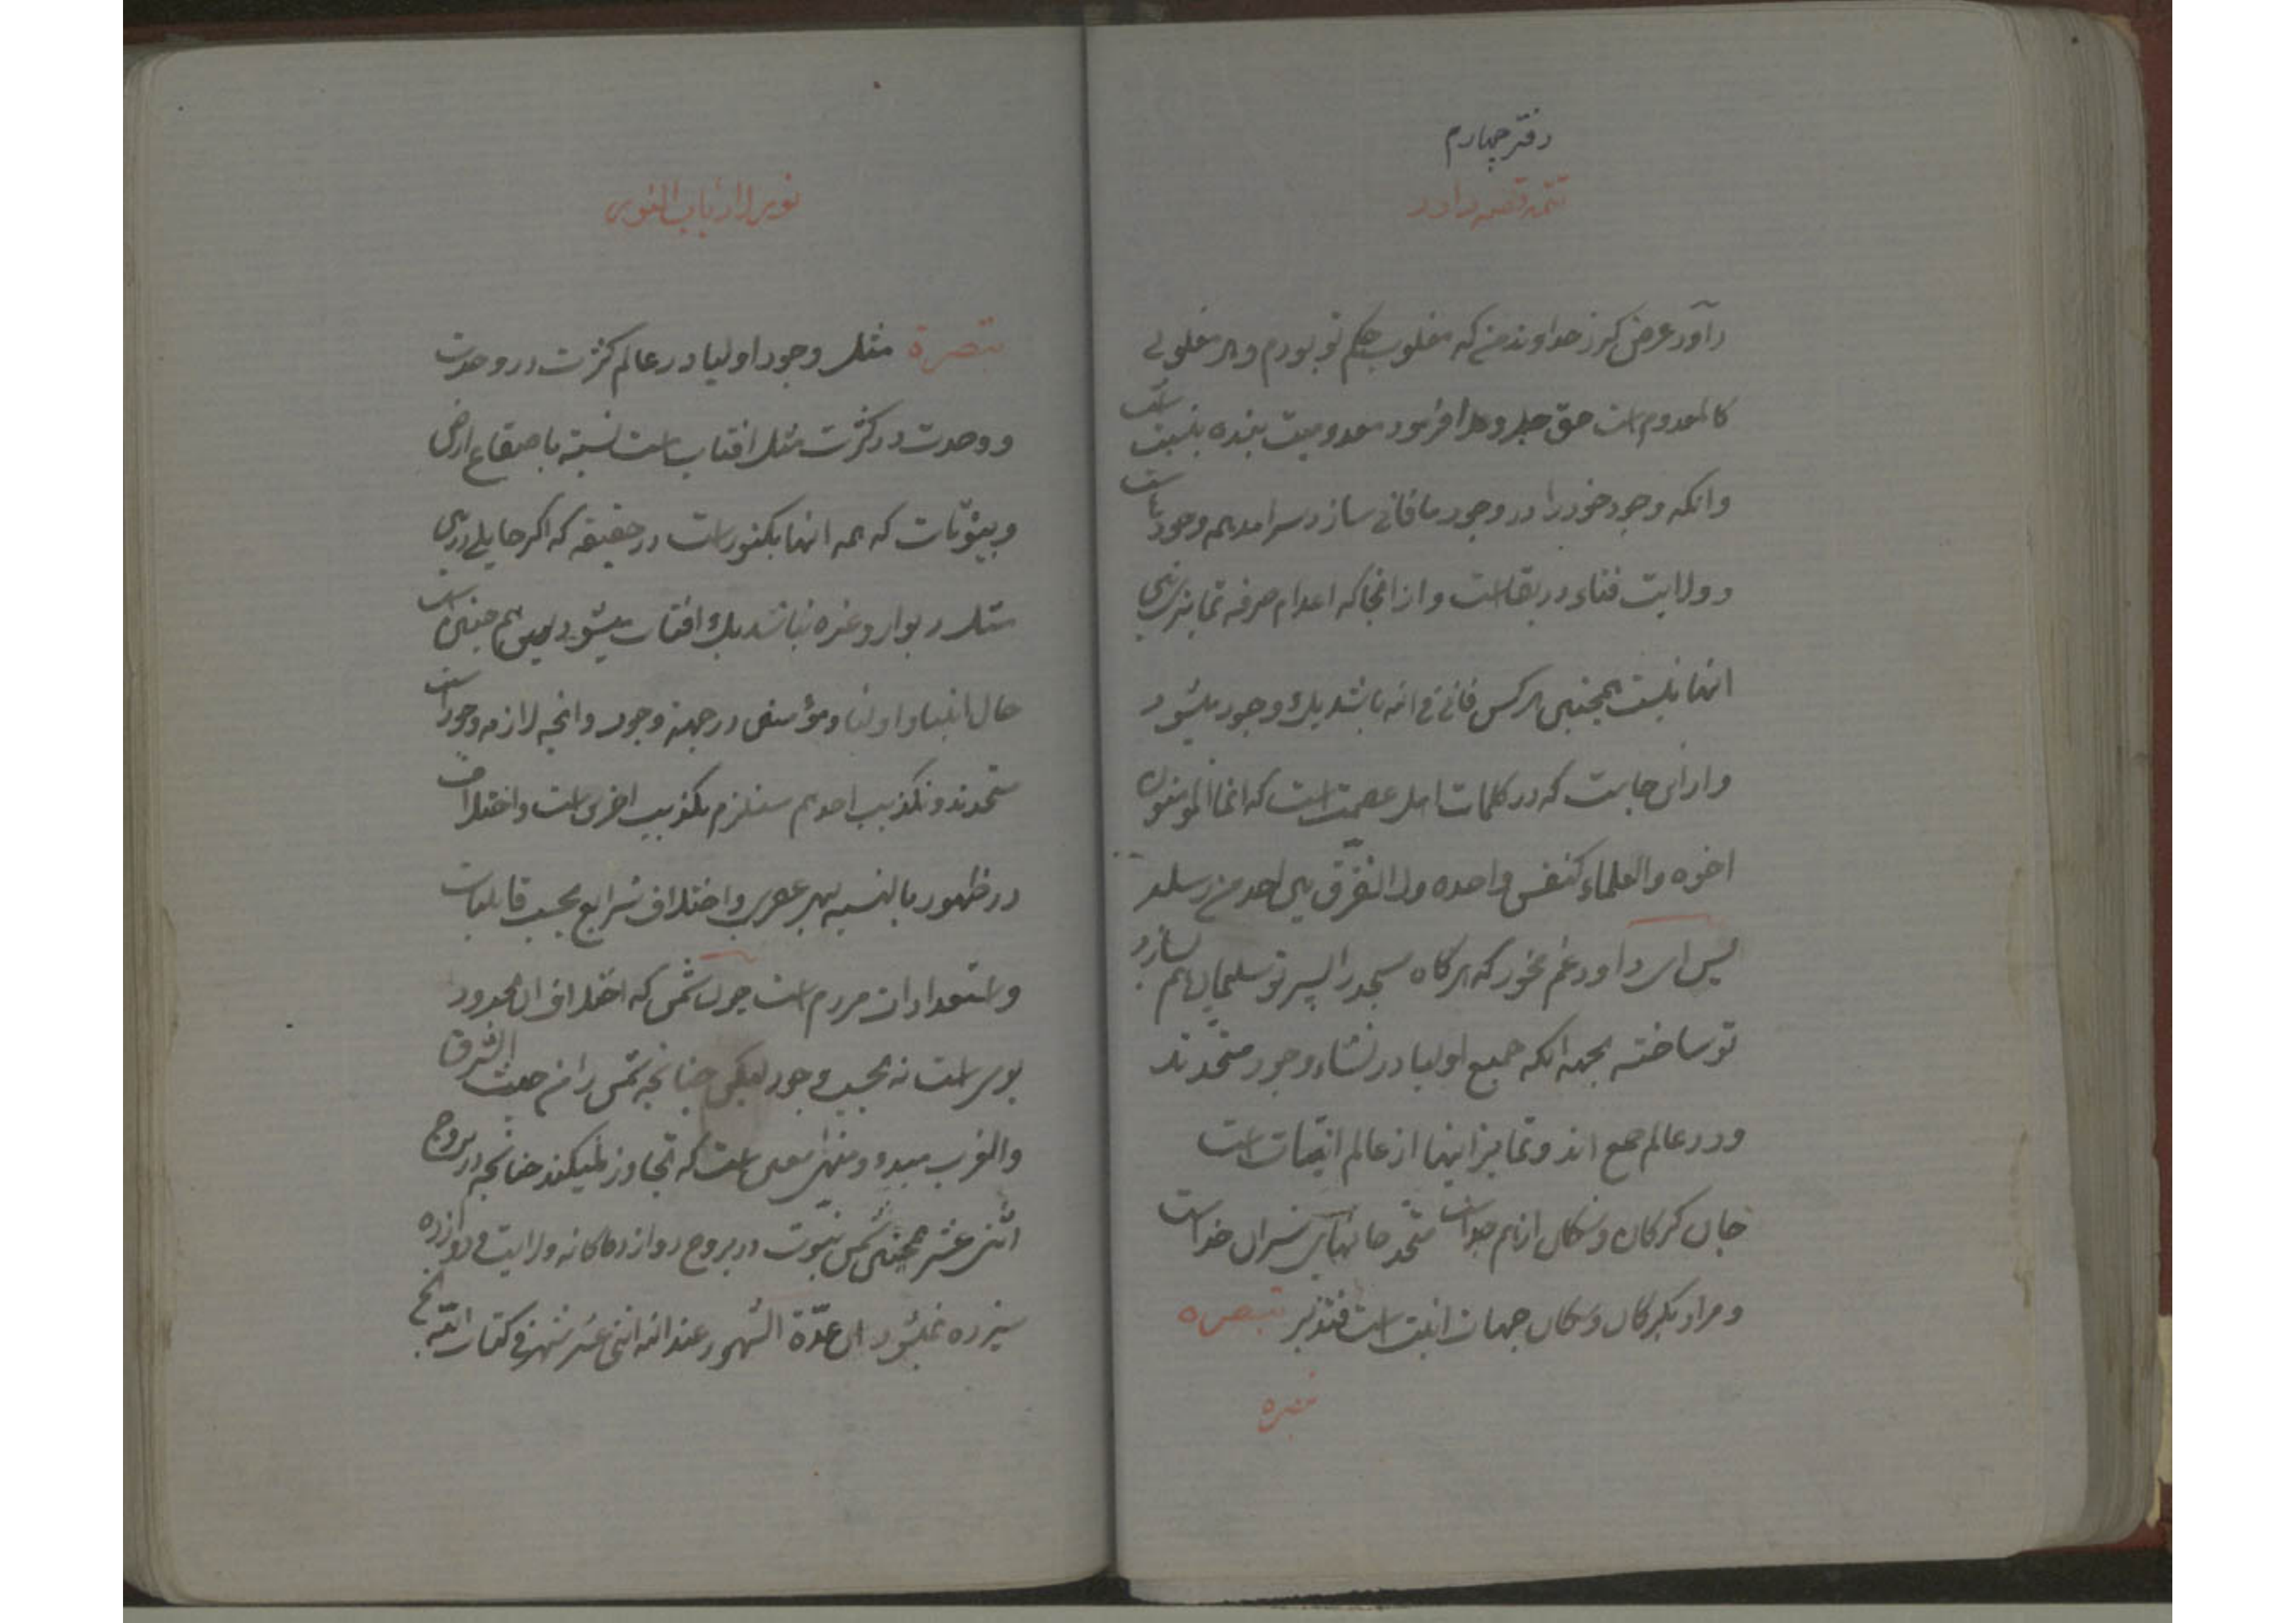 دفتر چهارم
تتمه قصه داود
داود عرض کرد خداوندا من که مغلوب حکم تو بودم و هر مغلوبی
کالمعدوم است حق جل و علا فرمود معدومیت بنده بنسبت است
وانکه وجود خود را در وجود ما فانی سازد سرامد همه وجودات است
و ولایت فناء در بقاست و از انجا که اعدام صرفه تمایزی
انها نیست همچنین هر کس فانی فی الله باشد یک وجود میشود
و از این جاست که در کلمات اهل عصمت است که انما المومنون
اخوه والعلماء کنفس واحده ولا نفرق بین احد من رسله
پس ای داود غم مخور که هر گاه مسجد را پسر تو سلیمان هم بسازد
تو ساخته بجهه انکه جمیع اولیا در نشاء وجود متحدند
و در عالم جمع اند و تمایز اینها از عالم انیات است
جان گرگان و سگان از هم جداست متحد جانهای شیران خداست
و مراد بگرگان و سگان جهات انیت است فتدبر تبصره
تبصره
تبصرة مثل وجود اولیا در عالم کثرت در وحدت
و وحدت در کثرت مثل افتاب است نسبته باصقاع ارض
و بیوتات که همه انها یکنور است در حقیقه که اگر حایلی در بین
مثل دیوار و غیره نباشد یک افتاب میشود پس هم چنین است
حال انبیا و اولیا و مؤمنین در جهة وجود و انچه لازمه وجود است
متحدند و تکذیب احدهم مستلزم تکذیب اخری است و اختلاف
در ظهور بالنسبه بهر عصری و اختلاف شرایع بحسب قابلیات
و استعدادات مردم است چون شمس که اختلاف ان بحدود
بودی است نه بحسب وجود لیکن چنانچه شمس را من حیث الشرق
والغرب مبدء و منتهی معین است که تجاوز نمیکند چنانچه در بروج
اثنی عشر همچنین شمس نبوت در بروج دوازده گانه ولایت دوازده
سیزده نمیشود ان عدّة الشهور عند الله اثنی عشر شهرا فی کتاب الله الخ